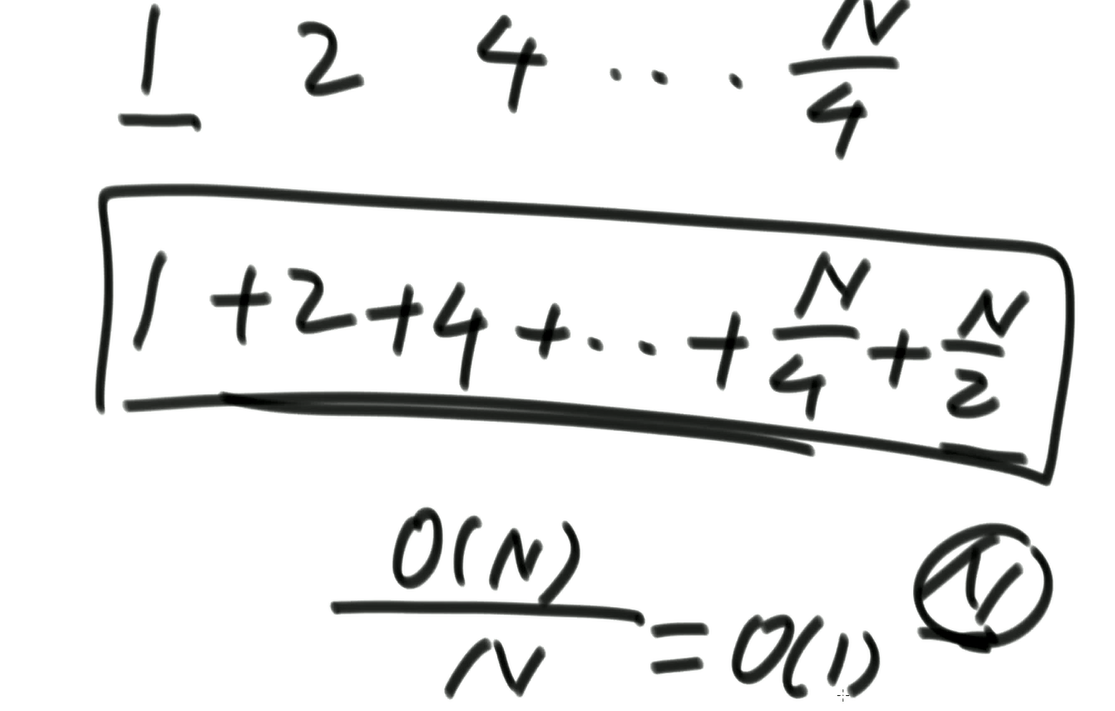 1 2 4 ... N/4
1 + 2 + 4 + ... + N/4 + N/2
O(N)/N = O(1) N